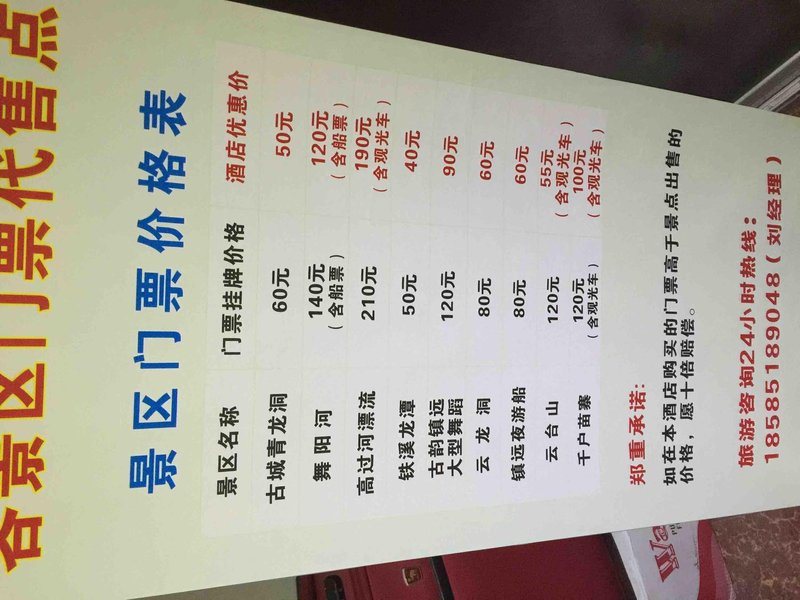 各景区门票代售点
景区门票价格表
景区名称 门票挂牌价格 酒店优惠价
古城青龙洞 60元 50元
舞阳河 140元 120元
(含船票) (含船票)
高过河漂流 210元 190元
(含观光车)
铁溪龙潭 50元 40元
古韵镇远 120元 90元
大型舞蹈
云龙洞 80元 60元
镇远夜游船 80元 60元
云台山 120元 55元
(含观光车)
千户苗寨 120元 100元
(含观光车) (含观光车)
郑重承诺:
如在本酒店购买的门票高于景点出售的
价格,愿十倍赔偿。
旅游咨询24小时热线:
18585189048(刘经理)